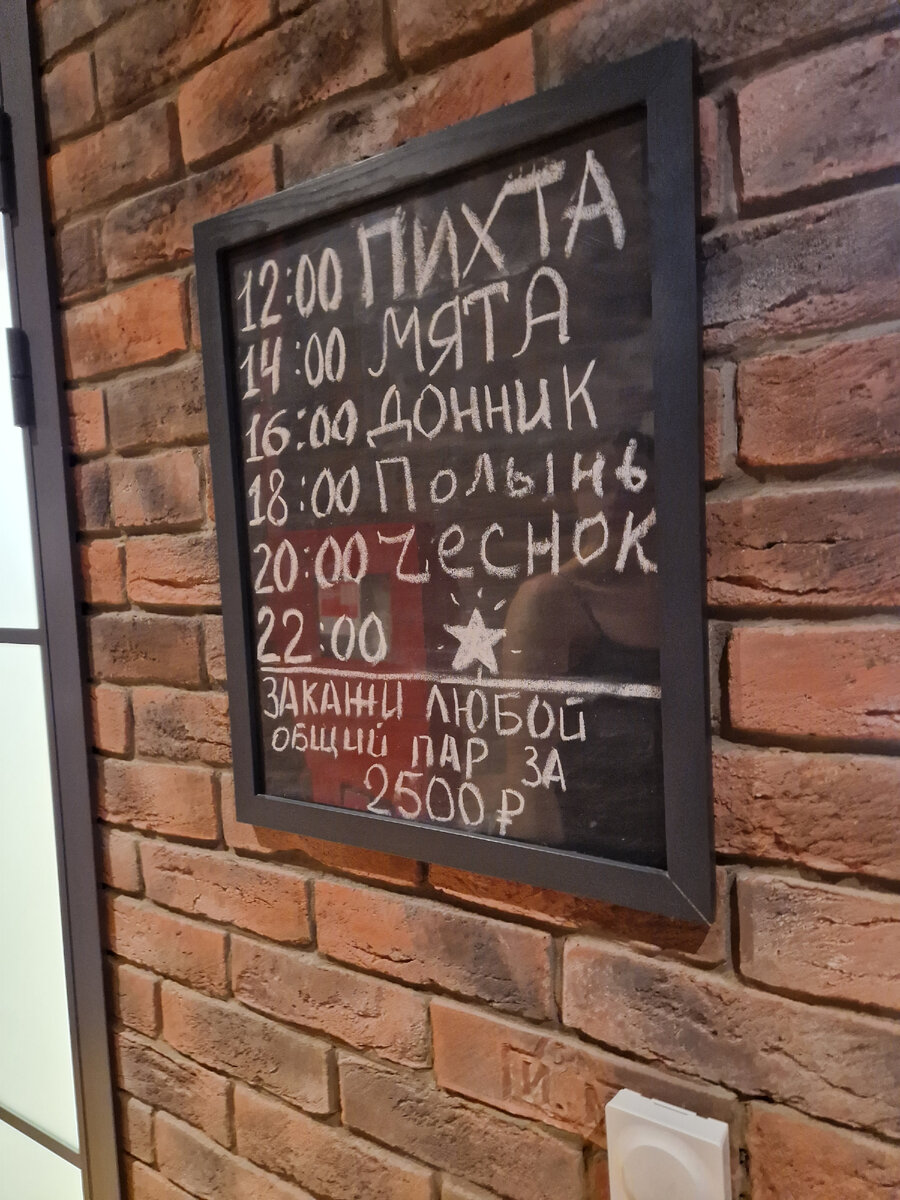 12:00 ПИХТА
14:00 МЯТА
16:00 ДОННИК
18:00 Полынь
20:00 Чеснок
22:00
ЗАКАЖИ ЛЮБОЙ
ОБЩИЙ ПАР ЗА
2500₽